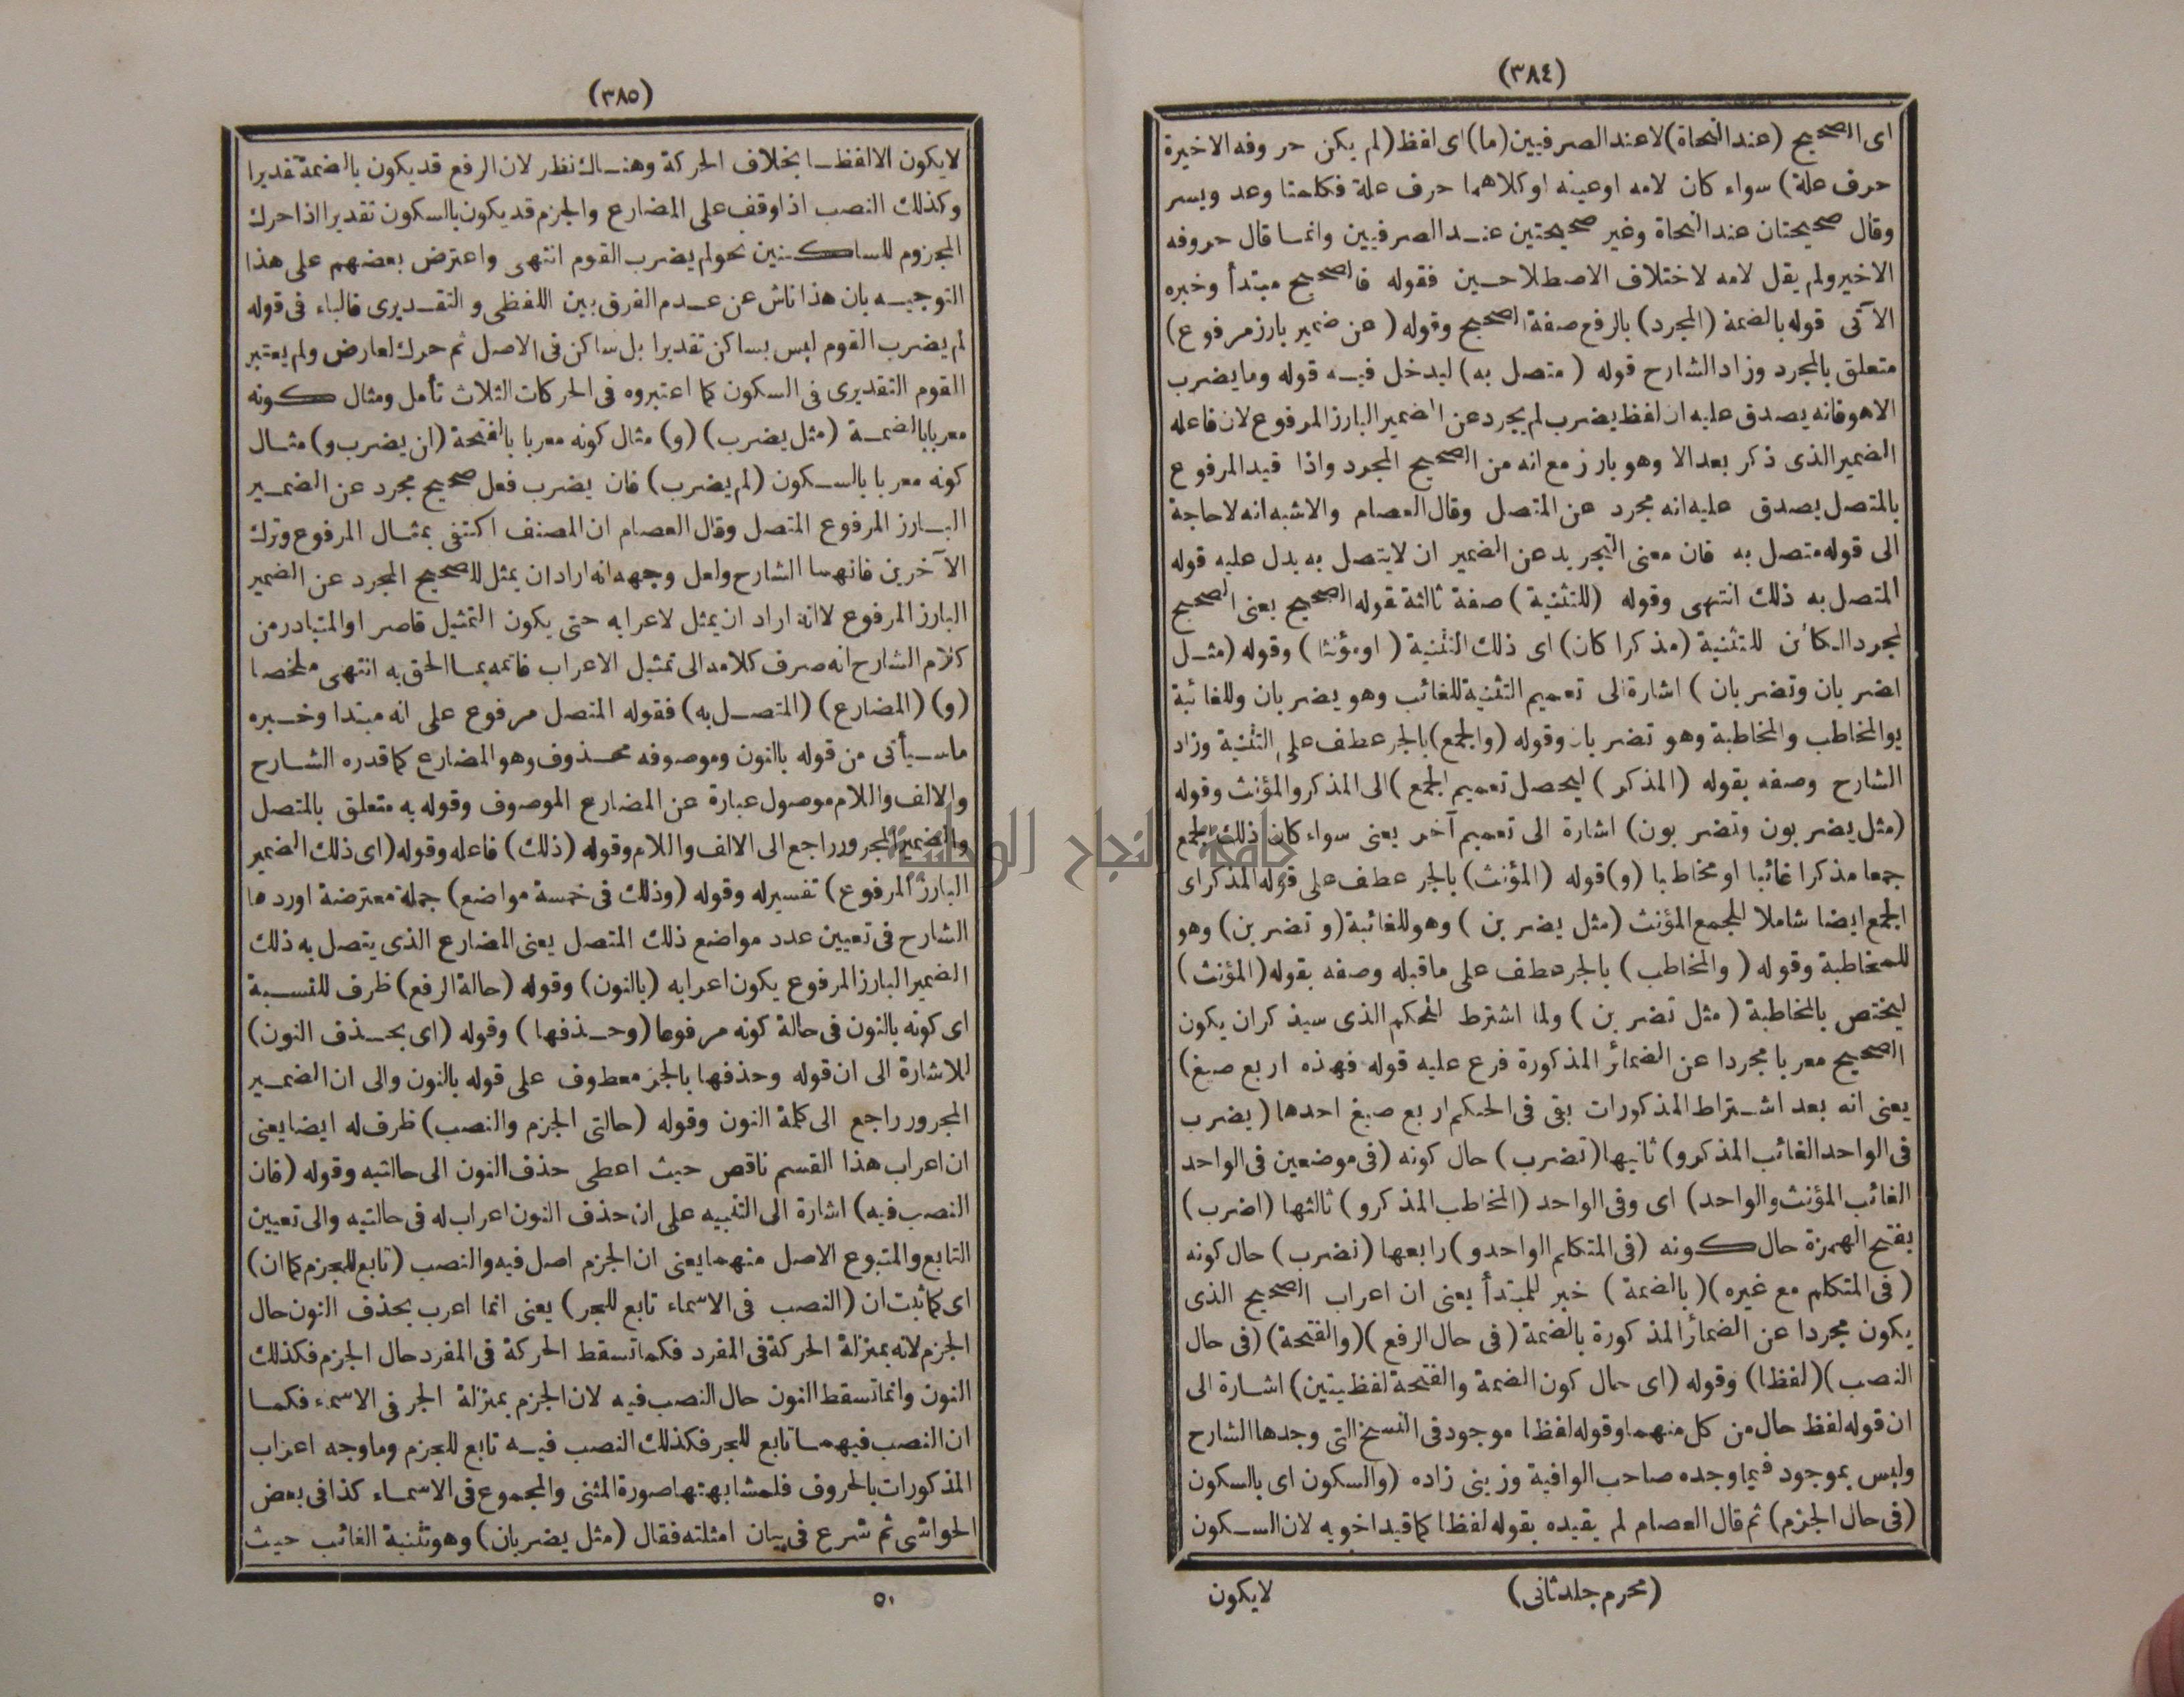 (٣٨٤)
اى الصحيح (عند النحاة) لا عند الصرفيين (ما) اى لفظ (لم يكن حروفه الاخيرة
حرف علة) سواء كان لامه او عينه او كلاهما حرف علة فكلمتا وعد ويسر
وقال صحيحتان عند النحاة وغير صحيحتين عند الصرفيين وانما قال حروفه
الاخير ولم يقل لامه لاختلاف الاصطلاحين فقوله فالصحيح مبتدأ وخبره
الآتى قوله بالضمة (المجرد) بالرفع صفة الصحيح وقوله (عن ضمير بارز مرفوع)
متعلق بالمجرد وزاد الشارح قوله (متصل به) ليدخل فيه قوله وما يضرب
الا هو فانه يصدق عليه ان لفظ يضرب لم يجرد عن الضمير البارز المرفوع لان فاعله
الضمير الذى ذكر بعد الا وهو بارز مع انه من الصحيح المجرد واذا قيد المرفوع
بالمتصل يصدق عليه انه مجرد عن المتصل وقال العصام والاشبه انه لا حاجة
الى قوله متصل به فان معنى التجريد عن الضمير ان لا يتصل به يدل عليه قوله
المتصل به ذلك انتهى وقوله (للتثنية) صفة ثالثة لقوله الصحيح يعنى الصحيح
المجرد الكائن للتثنية (مذكرا كان) اى ذلك التثنية (او مؤنثا) وقوله (مثل
يضربان وتضربان) اشارة الى تعميم التثنية للغائب وهو يضربان وللغائبة
والمخاطب والمخاطبة وهو تضربان وقوله (والجمع) بالجر عطف على التثنية وزاد
الشارح وصفه بقوله (المذكر) ليحصل تعميم الجمع) الى المذكر والمؤنث وقوله
(مثل يضربون وتضربون) اشارة الى تعميم آخر يعنى سواء كان ذلك الجمع
جمعا مذكرا غائبا او مخاطبا (و) قوله (المؤنث) بالجر عطف على قوله المذكر اى
الجمع ايضا شاملا للجمع المؤنث (مثل يضربن) وهو للغائبة (وتضربن) وهو
للمخاطبة وقوله (والمخاطب) بالجر عطف على ما قبله وصفه بقوله (المؤنث)
ليختص بالمخاطبة (مثل تضربن) ولما اشترط للحكم الذى سيذكر ان يكون
الصحيح معربا مجردا عن الضمائر المذكورة فرع عليه قوله فهذه اربع صيغ)
يعنى انه بعد اشتراط المذكورات بقى فى الحكم اربع صيغ احدها (يضرب
فى الواحد الغائب المذكر و) ثانيها (تضرب) حال كونه (فى موضعين فى الواحد
الغائب المؤنث والواحد) اى وفى الواحد (المخاطب المذكر و) ثالثها (اضرب)
بفتح الهمزة حال كونه (فى المتكلم الواحد و) رابعها (نضرب) حال كونه
(فى المتكلم مع غيره) (بالضمة) خبر للمبتدأ يعنى ان اعراب الصحيح الذى
يكون مجردا عن الضمائر المذكورة بالضمة (فى حال الرفع) (والفتحة) (فى حال
النصب) (لفظا) وقوله (اى حال كون الضمة والفتحة لفظيتين) اشارة الى
ان قوله لفظ حال من كل منهما وقوله لفظا موجود فى النسخ التى وجدها الشارح
وليس بموجود فيما وجده صاحب الوافية وزينى زاده (والسكون اى بالسكون
(فى حال الجزم) ثم قال العصام لم يقيده بقوله لفظا كما قيد اخويه لان السكون
(محرم جلد ثانى)
لا يكون
(٣٨٥)
لا يكون الا لفظا بخلاف الحركة وهناك نظر لان الرفع قد يكون بالضمة تقديرا
وكذلك النصب اذا وقف على المضارع والجزم قد يكون بالسكون تقديرا اذا حرك
المجزوم للساكنين نحو لم يضرب القوم انتهى واعترض بعضهم على هذا
التوجيه بان هذا ناش عن عدم الفرق بين اللفظى والتقديرى فالباء فى قوله
لم يضرب القوم ليس بساكن تقديرا بل ساكن فى الاصل ثم حرك لعارض ولم يعتبر
القوم التقديرى فى السكون كما اعتبروه فى الحركات الثلاث تأمل ومثال كونه
معربا بالضمة (مثل يضرب) (و) مثال كونه معربا بالفتحة (ان يضرب و) مثال
كونه معربا بالسكون (لم يضرب) فان يضرب فعل صحيح مجرد عن الضمير
البارز المرفوع المتصل وقال العصام ان المصنف اكتفى بمثال المرفوع وترك
الآخرين فاتهما الشارح ولعل وجهه انه اراد ان يمثل للصحيح المجرد عن الضمير
البارز المرفوع لا انه اراد ان يمثل لاعرابه حتى يكون التمثيل قاصرا والمتبادر من
كلام الشارح انه صرف كلامه الى تمثيل الاعراب فاتمه بما الحق به انتهى ملخصا
(و) (المضارع) (المتصل به) فقوله المتصل مرفوع على انه مبتدا وخبره
ما سيأتى من قوله بالنون وموصوفه محذوف وهو المضارع كما قدره الشارح
والالف واللام موصول عبارة عن المضارع الموصوف وقوله به متعلق بالمتصل
والضمير المجرور راجع الى الالف واللام وقوله (ذلك) فاعله وقوله (اى ذلك الضمير
البارز المرفوع) تفسير له وقوله (وذلك فى خمسة مواضع) جملة معترضة اوردها
الشارح فى تعيين عدد مواضع ذلك المتصل يعنى المضارع الذى يتصل به ذلك
الضمير البارز المرفوع يكون اعرابه (بالنون) وقوله (حالة الرفع) ظرف للنسبة
اى كونه بالنون فى حالة كونه مرفوعا (وحذفها) وقوله (اى بحذف النون)
للاشارة الى ان قوله وحذفها بالجر معطوف على قوله بالنون والى ان الضمير
المجرور راجع الى كلمة النون وقوله (حالتى الجزم والنصب) ظرف له ايضا يعنى
ان اعراب هذا القسم ناقص حيث اعطى حذف النون الى حالتيه وقوله (فان
النصب فيه) اشارة الى التنبيه على ان حذف النون اعراب له فى حالتيه والى تعيين
التابع والمتبوع الاصل منهما يعنى ان الجزم اصل فيه والنصب (تابع للجزم كما ان)
اى كما ثبت ان (النصب فى الاسماء تابع للجر) يعنى انما اعرب بحذف النون حال
الجزم لانه بمنزلة الحركة فى المفرد فكما تسقط الحركة فى المفرد حال الجزم فكذلك
النون وانما تسقط النون حال النصب فيه لان الجزم بمنزلة الجر فى الاسماء فكما
ان النصب فيهما تابع للجر فكذلك النصب فيه تابع للجزم وما وجه اعراب
المذكورات بالحروف فلمشابهتها صورة المثنى والمجموع فى الاسماء كذا فى بعض
الحواشى ثم شرع فى بيان امثلته فقال (مثل يضربان) وهو تثنية الغائب حيث
٥٠
جامعة النجاح الوطنية